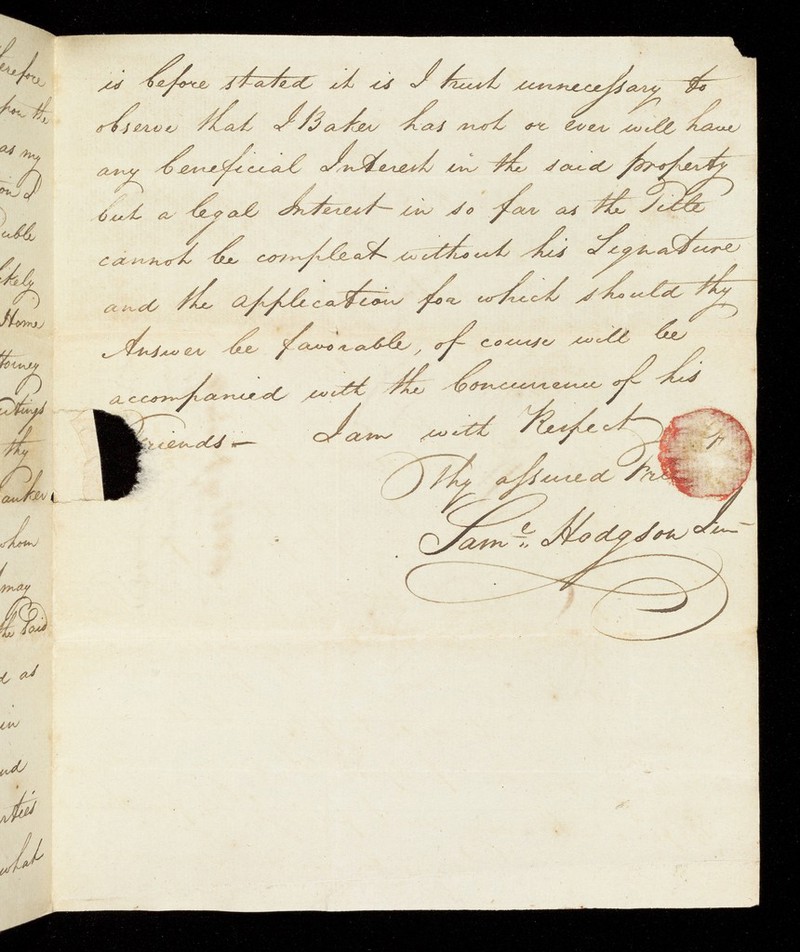 herefore
upon the
as my
uble
ikely
Home
ttorney
thy
anker
whom
may
the Said
d as
in
nd
rties
what
is before stated it is I trust unnecessary to
observe that I Baker has not or ever will have
any beneficial Interest in the said property
but a legal Interest in so far as the Title
cannot be compleat without his Signature
and the application for which should thy
Answer be favorable, of course will be
accompanied with the Concurrence of his
riends – I am with Respect
Thy assured Frie
Saml. Hodgson Jun